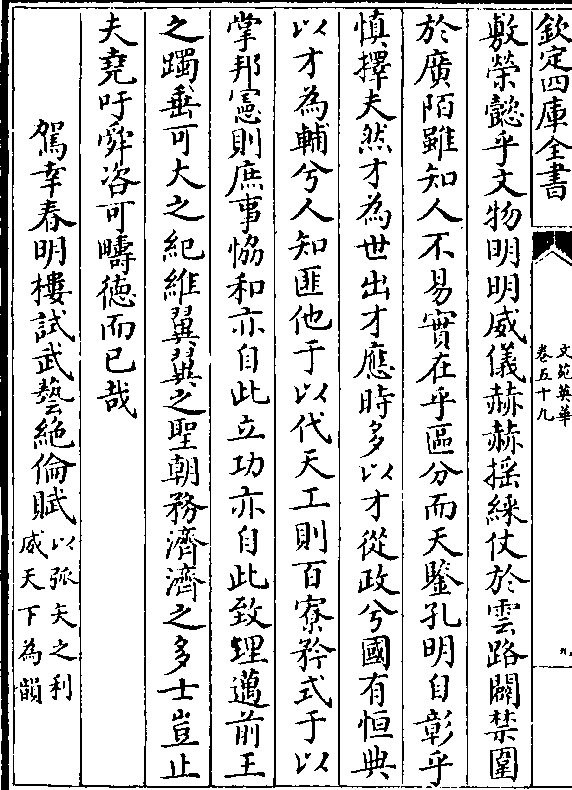 欽定四庫全書
文苑英華
卷五十九
九
敷榮懿乎文物明明威儀赫赫揺綵仗於雲路闢禁圍
於廣陌雖知人不易實在乎區分而天鑒孔明自彰乎
慎擇夫然才為世出才應時多以才從政兮國有恒典
以才為輔兮人知匪他于以代天工則百寮矜式于以
掌邦憲則庶事恊和亦自此立功亦自此致理邁前王
之躅垂可大之紀維翼翼之聖朝務濟濟之多士豈止
夫堯吁舜咨可疇徳而已哉
駕幸春明樓試武藝絶倫賦以弧矢之利
威天下為韻